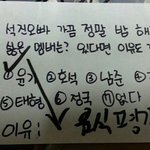 석진오빠 가끔 정말 밥 해
싶은 멤버는? 있다면 이유도
① 윤기 ② 호석 ③ 남준 ④
⑤ 태형 ⑥ 정국 ⑦ 없다
이유: 음식